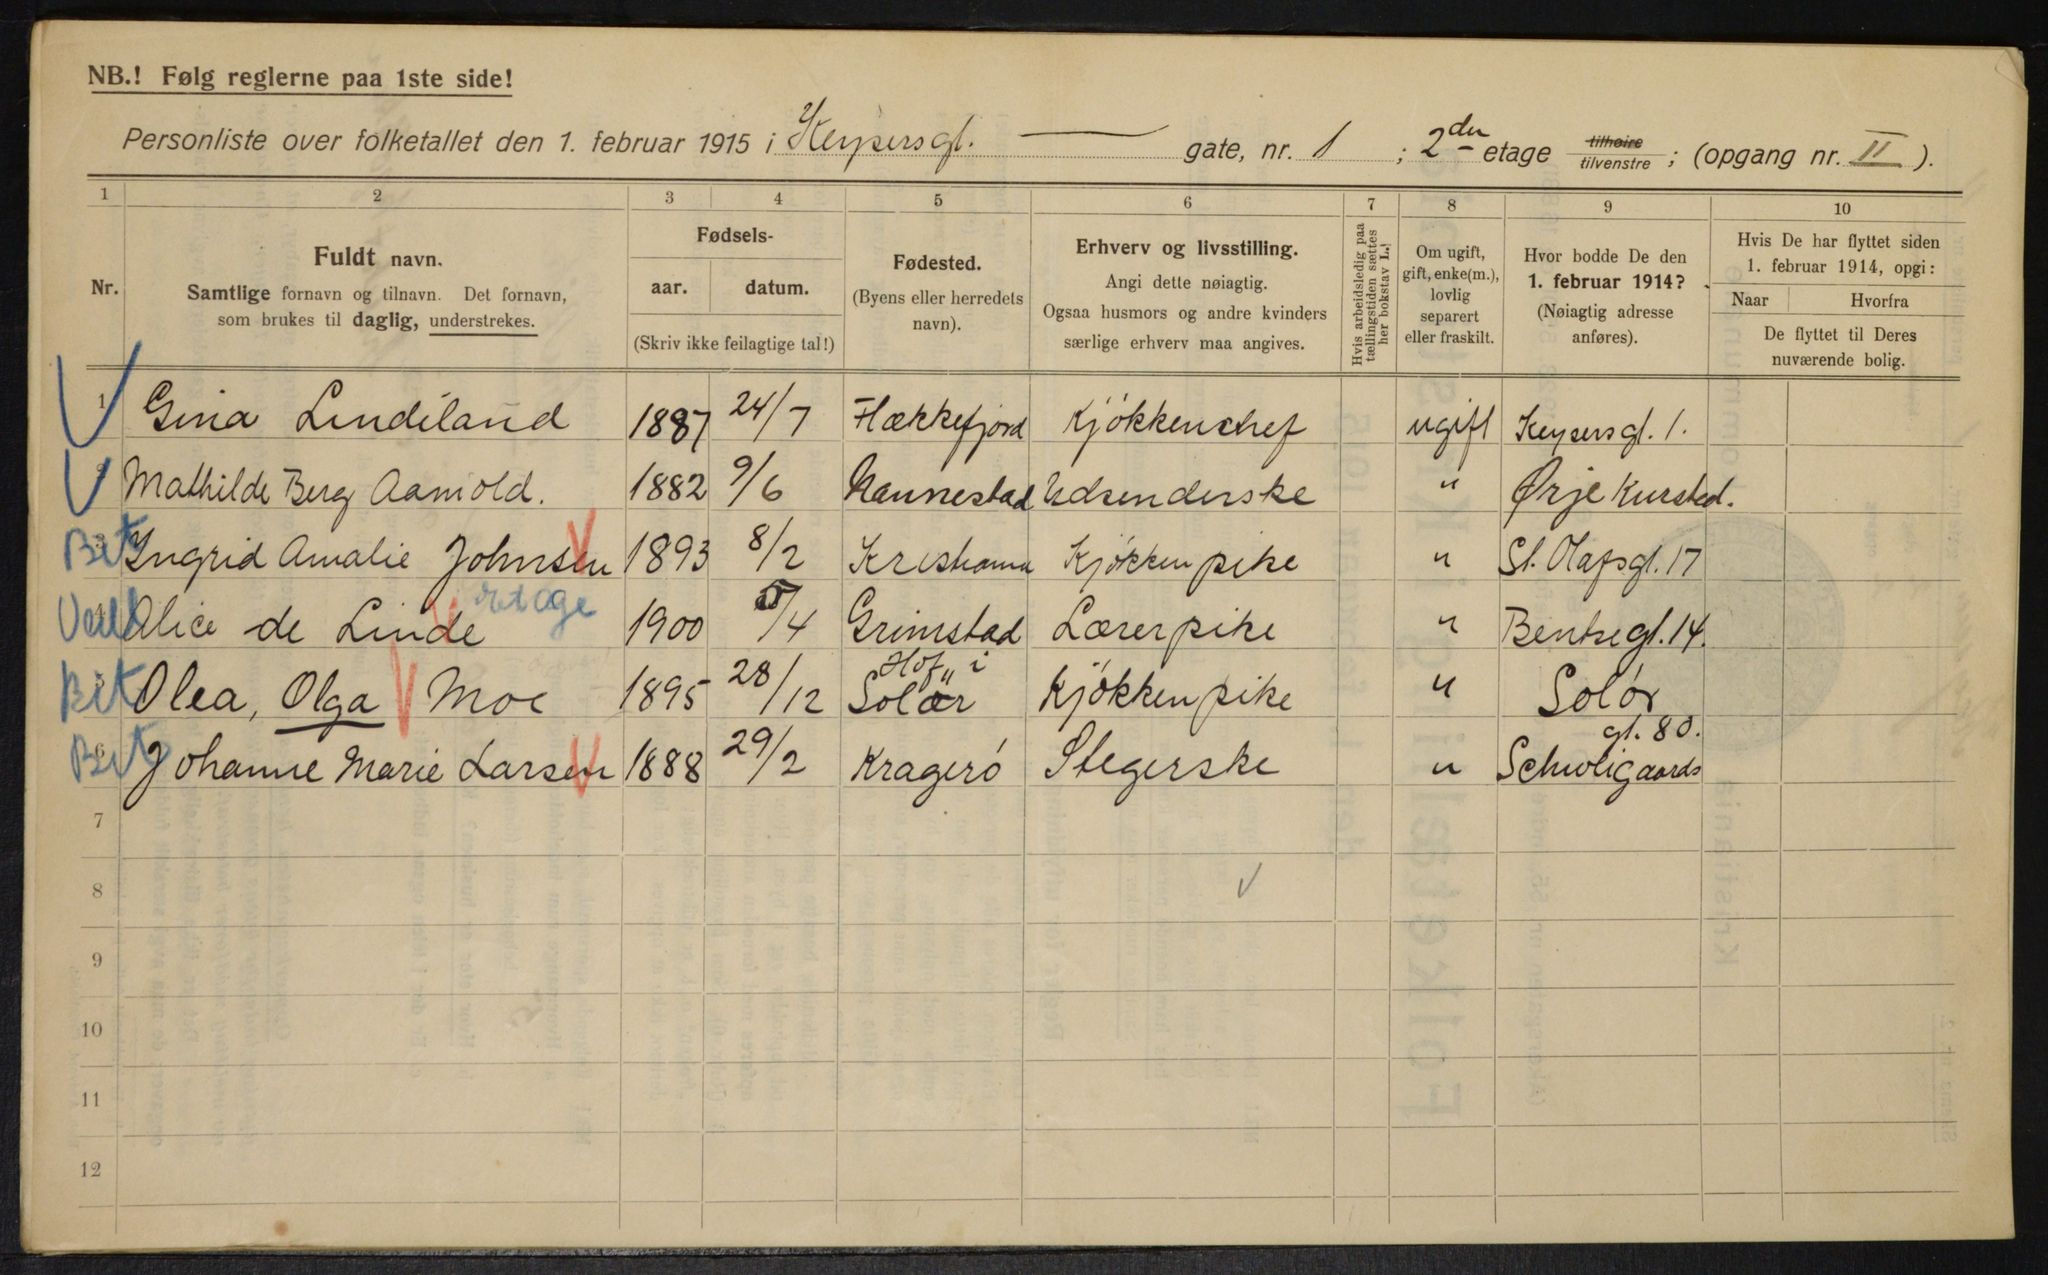 NB.! Følg reglerne paa 1ste side!
Personliste over folketallet den 1. februar 1915 i Keysersgt. gate, nr. 1 ; 2den etage tilhøire tilvenstre ; (opgang nr. II ).
1 2 3 4 5 6 7 8 9 10
Nr.
Fuldt navn.
Samtlige fornavn og tilnavn. Det fornavn,
som brukes til daglig, understrekes.
Fødsels-
aar. datum.
(Skriv ikke feilagtige tal!)
Fødested.
(Byens eller herredets
navn).
Erhverv og livsstilling.
Angi dette nøiagtig.
Ogsaa husmors og andre kvinders
særlige erhverv maa angives.
Hvis arbeidsledig paa
tællingstiden sættes
her bokstav L.!
Om ugift,
gift, enke(m.),
lovlig
separert
eller fraskilt.
Hvor bodde De den
1. februar 1914?
(Nøiagtig adresse
anføres).
Hvis De har flyttet siden
1. februar 1914, opgi:
Naar Hvorfra
De flyttet til Deres
nuværende bolig.
1 Gina Lindeland 1887 24/7 Flækkefjord Kjökkenchef ugift Keysersgt. 1.
2 Mathilde Berg Aamold. 1882 9/6 Nannestad Udsenderske " Ørje Kursted.
3 Ingrid Amalie Johnsen 1893 8/2 Kristiania Kjökkenpike " St. Olafsgt. 17
4 Alice de Linde 1900 /4 Grimstad Lærerpike " Bentsegt. 14.
5 Olea, Olga Moe 1895 28/12 Hof i Solør Kjökkenpike " Solör
6 Johanne Marie Larsen 1888 29/2 Kragerö Stegerske " Schweigaards gt. 80.
7
8
9
10
11
12